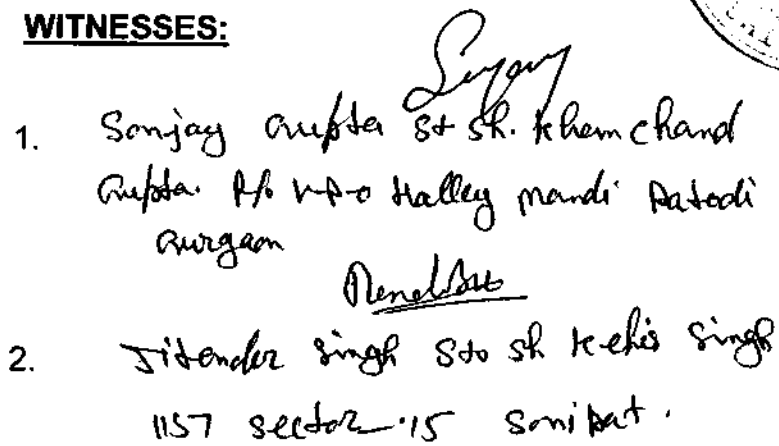 WITNESSES:
1. Sanjay Gupta S/o Sh. Khem Chand
Gupta. R/o V.P.O Halley Mandi Patodi
Gurgaon
2. Jitender Singh S/o Sh Kehir Singh
1157 Sector-15 Sonipat.